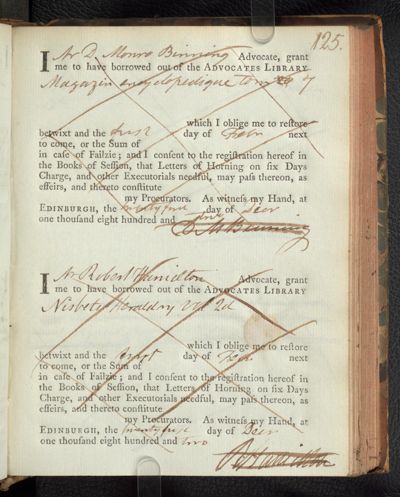 125.
I Ar D. Monro Binning Advocate, grant
me to have borrowed out of the ADVOCATES LIBRARY
Magazin encyclopedique tom 7
which I oblige me to restore
betwixt and the first day of Febr next
to come, or the Sum of
in case of Failzie; and I consent to the registration hereof in
the Books of Session, that Letters of Horning on six Days
Charge, and other Executorials needful, may pass thereon, as
effeirs, and thereto constitute
my Procurators. As witness my Hand, at
EDINBURGH, the twenty first day of Decr
one thousand eight hundred and two
D. M. Binning
I Ar Robert Hamilton Advocate, grant
me to have borrowed out of the ADVOCATES LIBRARY
Nisbets Heraldry vol 2d
which I oblige me to restore
betwixt and the first day of Feb. next
to come, or the Sum of
in case of Failzie; and I consent to the registration hereof in
the Books of Session, that Letters of Horning on six Days
Charge, and other Executorials needful, may pass thereon, as
effeirs, and thereto constitute
my Procurators. As witness my Hand, at
EDINBURGH, the twenty first day of Decr
one thousand eight hundred and two
R Hamilton